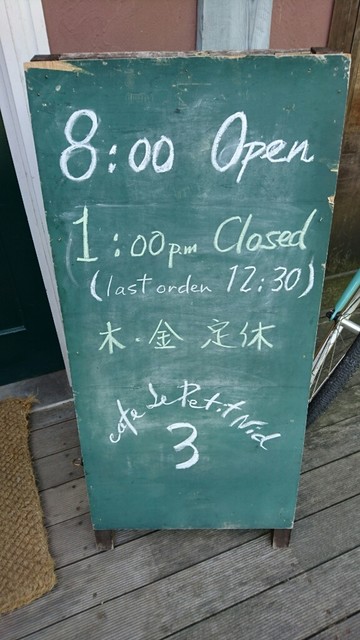 8:00 Open
1:00 p.m Closed
(last orden 12:30)
木・金 定休
cafe Le Petit Nid
3